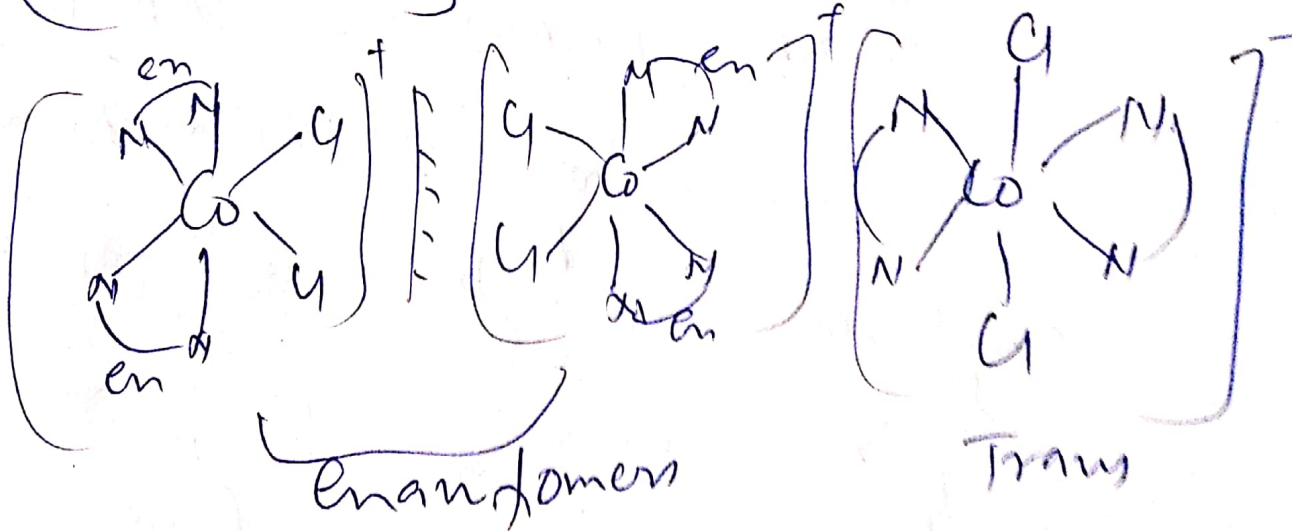 en N N Cl + Co N N en Cl
+ N en N Cl Co Cl N N en
Cl N N Co N N Cl -
enantiomers
Trans